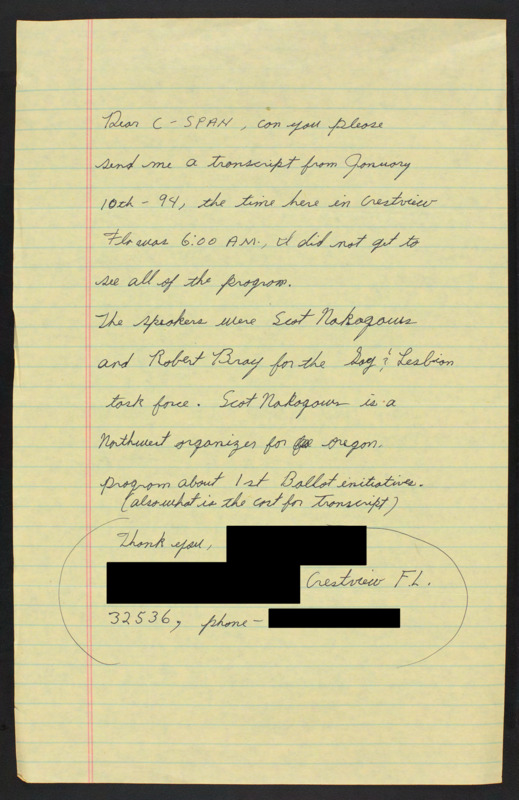 Dear C-SPAN, can you please
send me a transcript from January
10th - 94, the time here in Crestview
Fla was 6:00 A.M., I did not get to
see all of the program.
The speakers were Scot Nakagawa
and Robert Bray for the Gay & Lesbian
task force. Scot Nakagawa is a
Northwest organizer for oregon.
program about 1st Ballot enitiatives.
(also what is the cost for transcript)
Thank you,
Crestview F.L.
32536, phone-